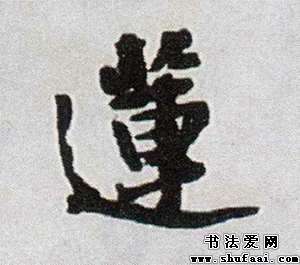 蓮
书法爱网
www.shufaai.com